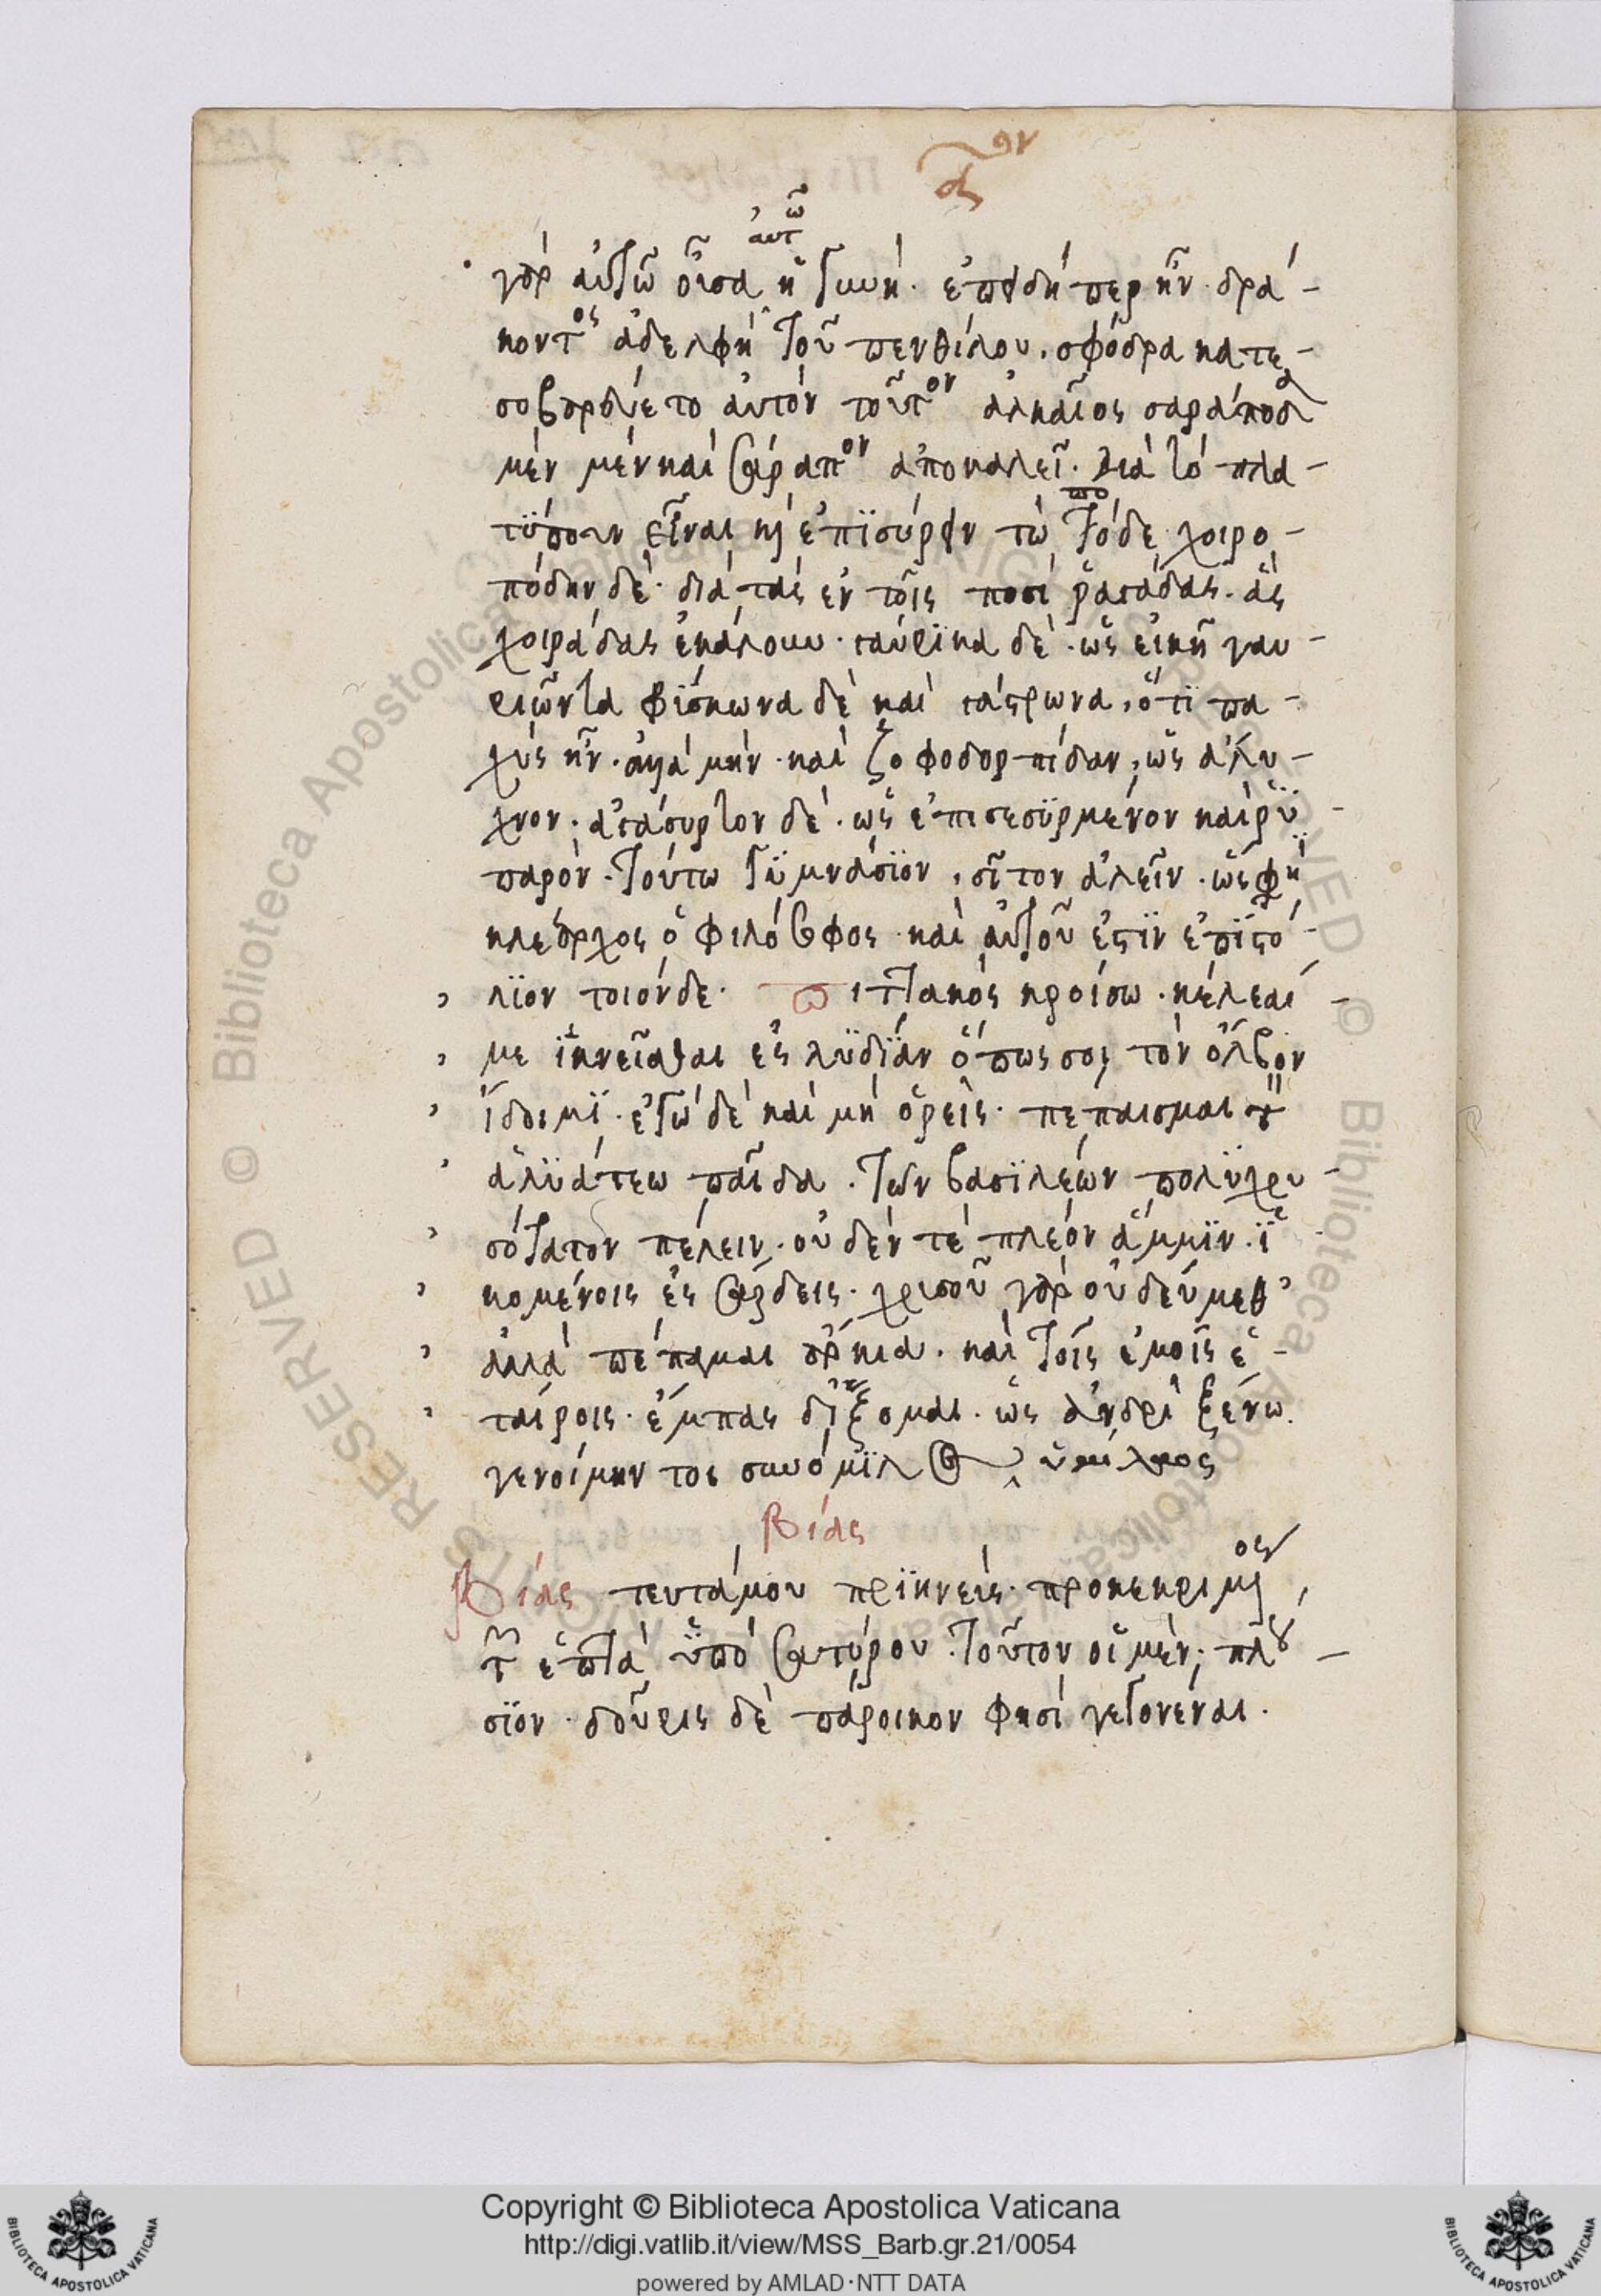 α ον
αυτῶ
γὰρ αὐτῶ οὖσα ἡ γυνή. ἐπειδή περ ἦν δρά-
κοντος ἀδελφὴ τοῦ πενθίλου, σφόδρα κατε-
σοβαρεύετο αὐτόν τοῦτον ἀλκαῖος σαράποδα
μὲν μὲν καὶ σάραπον ἀποκαλεῖ. διὰ τὸ πλα-
πο
τϋπουν εἶναι κỳ ἐπϊσύρειν τὼ τόδε χειρο-
πόδην δὲ. διὰ τὰς ἐν τοῖς ποσὶ ῥαγάδας. ἃς
χοιράδας ἐκάλουν. γαύρϊκα δὲ. ὡς εἰκῆ γαυ-
ριῶντα φϊσκωνα δὲ καὶ γάστρωνα, ὅτϊ πα-
χὺς ἦν. ἀλλὰ μὴν. καὶ ζοφοδορπίδαν, ὡς ἄλυ-
χνον. ἀγάσυρτον δέ. ὡς ἐπισεσϋρμένον καὶ ῥϋ-
παρόν. τούτω γϋμνάσϊον, σῖτον ἀλεῖν. ὥς φη
κλέαρχος ὁ φιλόσοφος καὶ αὐτοῦ ἐστϊν ἐπϊστό-
λϊον τοιόνδε. πιττακὸς κροίσω. κέλεαί-
με ϊκνεῖσθαι ἐς λϋδϊάν ὅπως σοι τὸν ὄλβον
ἴδοιμϊ. ἐγὼ δὲ καὶ μὴ ὁρεὶς. πέπεισμαι τοῦ
ἀλϋάττεω παῖδα. τῶν βασϊλεών πολϋχρυ-
σότατον πέλειν. οὐδέν τε πλέον ἄμμϊν. ϊ
κομένοις ἐς σάρδεις. χρισοῦ γὰρ οὐ δεύμεθ'
ἀλλὰ πέπαμαι ἄρκια. καὶ τοῖς ἐμοῖς ἑ-
ταίροις. ἔμπας δ' ἵξομαι. ὡς ἀνδρὶ ξένω.
γενοίμην τοι συνόμϊλος
Βίας
Βίας τευτάμου πρϊηνεὺς. προκεκριμένος
τῶν ἑπτὰ ϋπὸ σατύρου. τοῦτον οἱ μὲν; πλού-
σϊον. δοῦρις δὲ πάροικον φησὶ γεγονέναι.
Copyright © Biblioteca Apostolica Vaticana
http://digi.vatlib.it/view/MSS_Barb.gr.21/0054
powered by AMLAD·NTT DATA